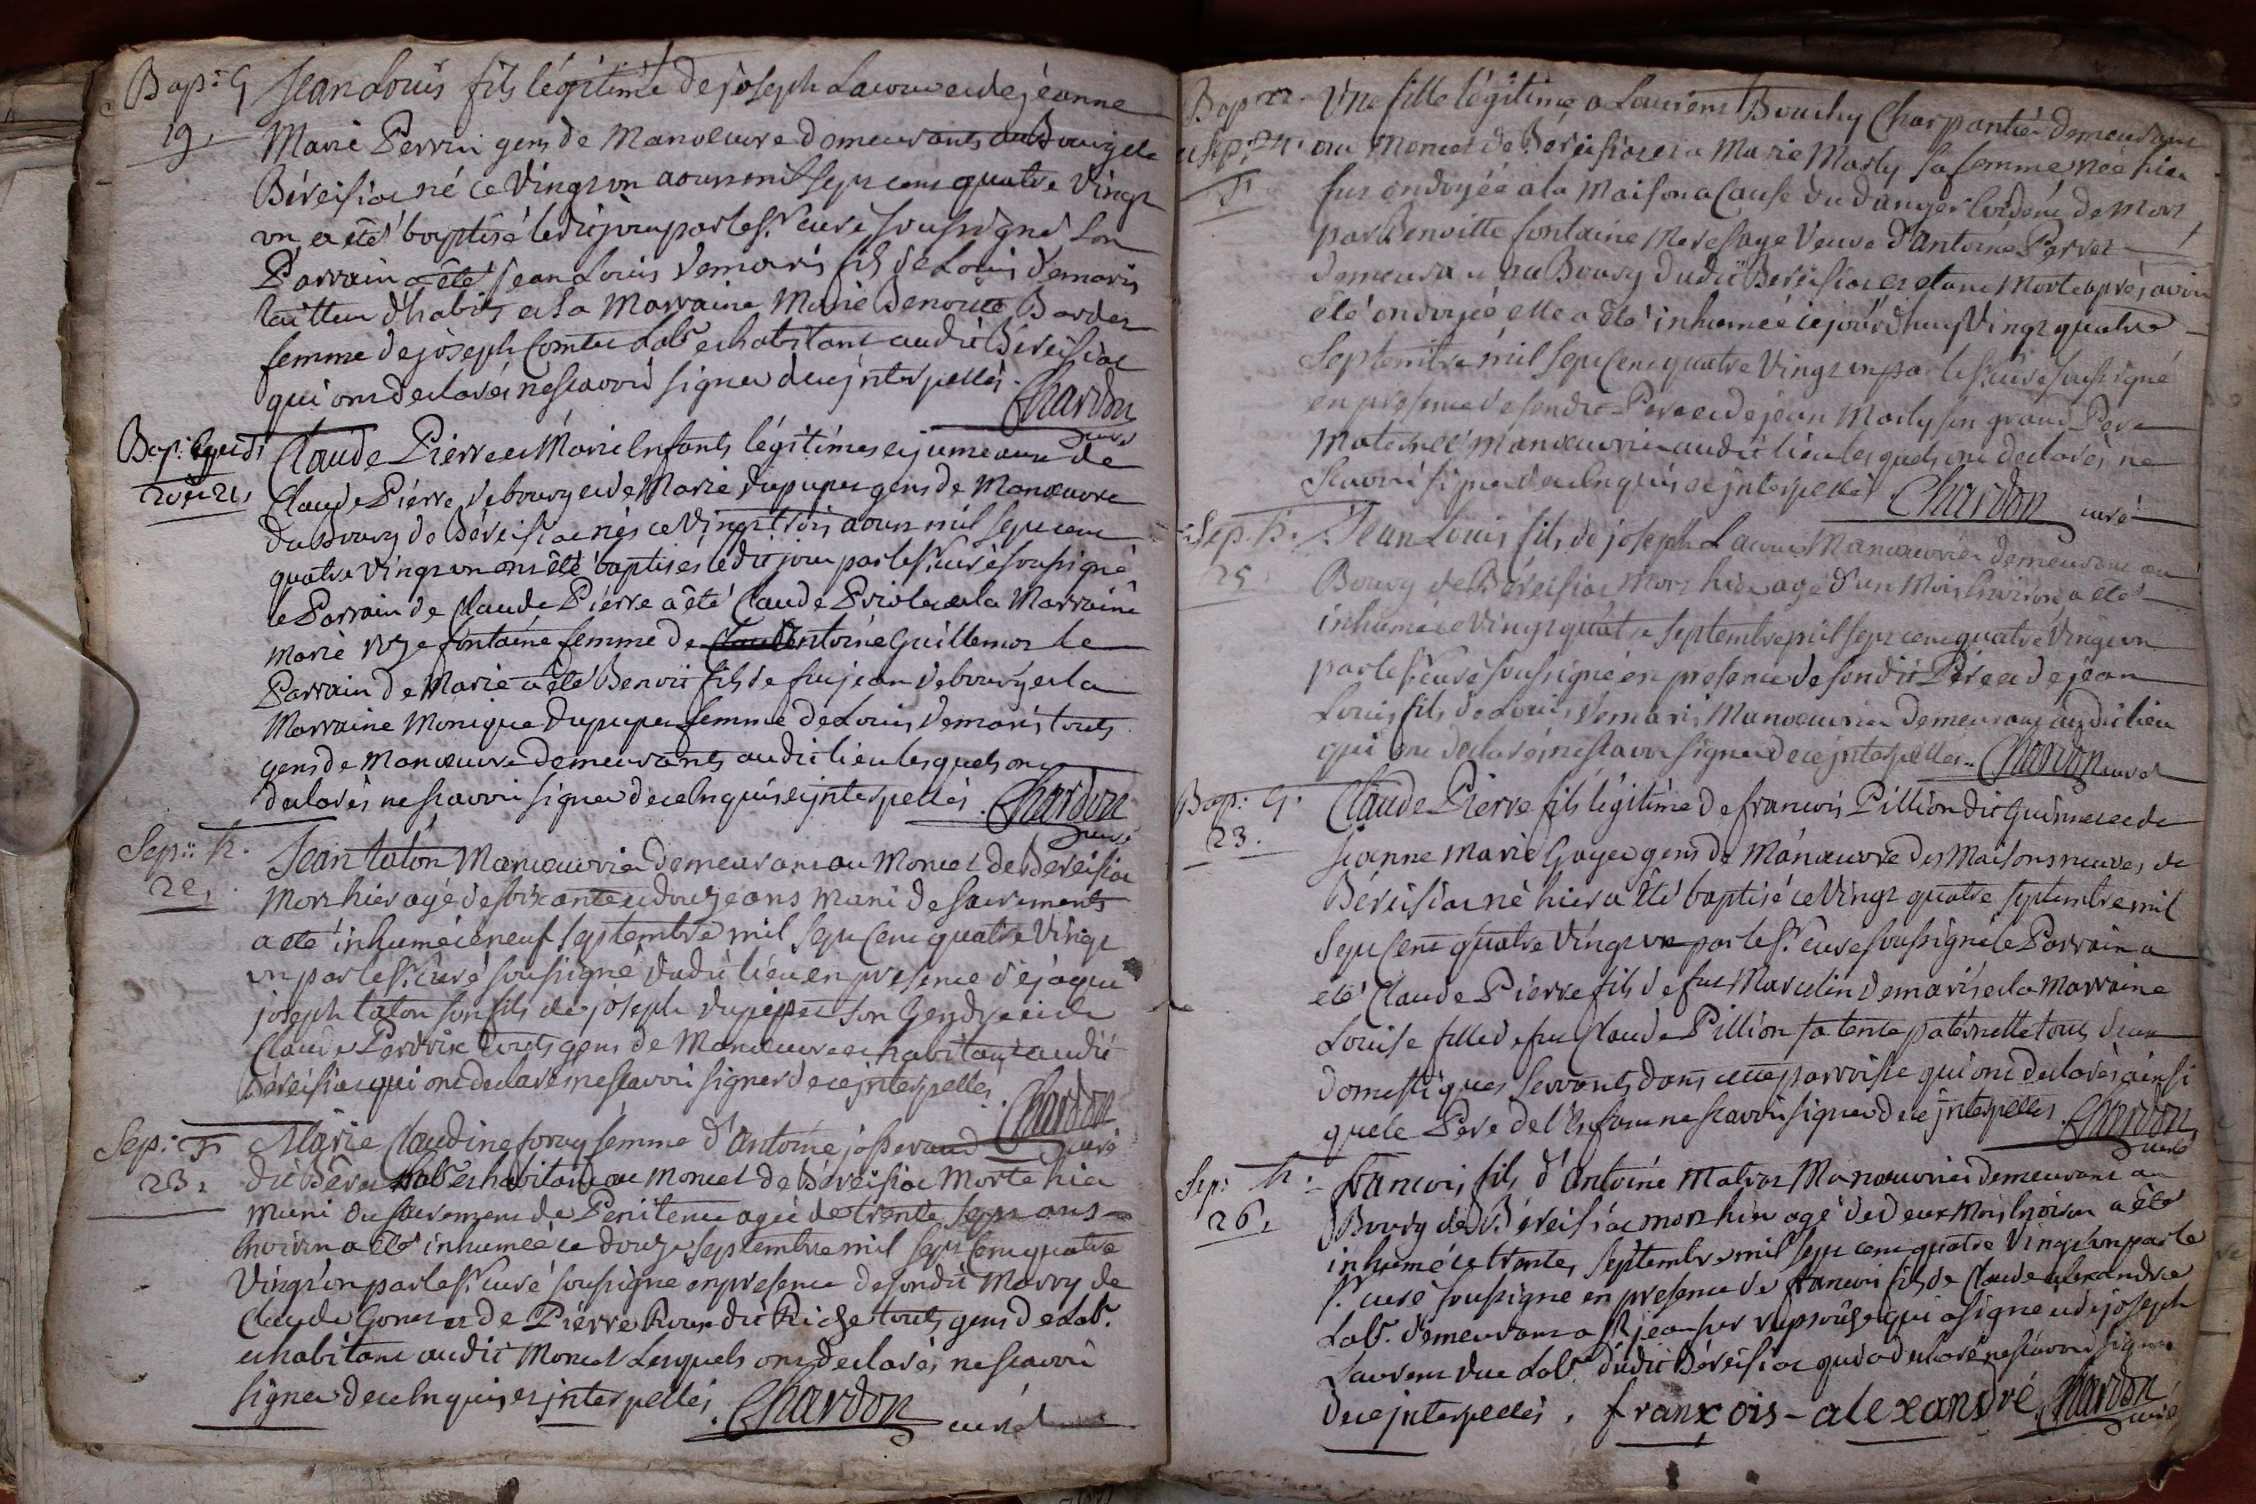 Bap: G
19.
Jean Louis fils légitime de joseph Lacour et de jéanne
Marie Perrin gens de Manoeuvre demeurants au Bourg de
Béreisiac né ce vingt un aoust mil sept cent quatre vingt
un a été baptisé ledit jour par le Sr. curé soussigné son
Parrain a été jean Louis demaris fils de Louis demaris
tailleur d'habits et la Marraine Marie denoise Bardet
femme de joseph Comte Labr. et habitant audit Béreisiac
qui ont déclarés ne scavoir signer de ce jnterpellés.
Chardon
curé
Bap: G et F
20 et 21.
Claude Pierre et Marie Enfants légitimes et jumeaux de
Claude Piérre debourg et de Marie dupuper gens de Manoeuvre
du Bourg de Béreisiac nés ce vingt trois aoust mil sept cent
quatre vingt un ont été baptisés ledit jour par le Sr. curé soussigné
le Parrain de Claude Pierre a été Claude Priolet et la Marraine
Marie fontaine femme de Antoine Guillemot le
Parrain de Marie a été Benoit fils de feu jean debourg et la
Marraine Monique dupuper femme de Louis demaris touts
gens de Manoeuvre demeurants audit lieu lesquels ont
declarés ne scavoir signer de ce Enquis et jnterpellés. Chardon
curé
Sep:: h.
22.
Jean talon Manoeuvrier demeurant au Moncel de Béreisiac
Mort hier agé de soixante et douze ans muni de sacrements
a été inhumé ce neuf septembre mil sept cent quatre vingt
un par le Sr. Curé soussigné dudit lieu en presence de jaque
joseph talon son fils de joseph dupuper son Gendre et de
Claude Perdrix touts gens de Manoeuvre et habitant audit
Béreisiac qui ont declarés ne scavoir signer de ce jnterpellés.
Chardon
curé
Sep: F
23.
Marie Claudine foray femme d'Antoine josserand
dit Labr. et habitant au Moncel de Béreisiac Morte hier
muni du sacrement de Penitence agée de trente sept ans
Environ a été inhumée ce douze septembre mil sept cent quatre
vingt un par le Sr. curé soussigné en presence de sondit Marry de
Claude Gonet et de Piérre Roux dit Riche touts gens de Labr.
et habitant audit Moncel Lesquels ont declarés ne scavoir
signer de ce Enquis et jnterpellés. Chardon curé
Bap: 22.
et Sep: 24.
F
Une fille légitime a Laurent Bouchy Charpantier demeurant
au Moncel de Béreisiac et a Marie Marly sa femme née hier
fut ondoyée a la Maison a Cause du danger Evident de mort
par Benoitte fontaine Mere sage veuve d'Antoine Perret
demeurant au Bourg dudit Béreisiac et étant Morte aprés avoir
été ondoyée elle a été inhumée ce jourd'huy vingt quatre
Septembre mil sept cent quatre vingt un par le Sr. curé soussigné
en presence de sondit Pere et de jean Marly son grand Pere
Maternel Manoeuvrier audit lieu lesquels ont declarés ne
scavoir signer de ce Enquis et jnterpellés Chardon curé
Sep: h.
25.
Jean Louis fils de joseph Lacour Manoeuvrier demeurant au
Bourg de Béreisiac mort hier agé d'un Mois Environ a été
inhumé ce vingt quatre septembre mil sept cent quatre vingt un
par le Sr. curé soussigné en presence de sondit Pére et de jean
Louis fils de Louis demaris Manoeuvrier demeurant audit lieu
qui ont declarés ne scavoir signer de ce jnterpellés. Chardon curé
Bap: G.
23.
Claude Pierre fils légitime de francois Pillion dit et de
jeanne Marie Goyet gens de Manoeuvre des Maisons neuves de
Béreisiac né hier a été baptisé ce vingt quatre septembre mil
sept cent quatre vingt un par le Sr. curé soussigné le Parrain a
été Claude Pierre fils de feu Marcelin demaris et la Marraine
Louise fille de feu Claude Pillion sa tente paternelle touts deux
domestiques servants dans cette parroisse qui ont declarés ainsi
que le Pere de l'Enfant ne scavoir signer de ce jnterpellés. Chardon
curé
Sep: h.
26.
francois fils d'Antoine Matras Manoeuvrier demeurant au
Bourg de Béreisiac mort hier agé de deux mois Environ a été
inhumé ce trente septembre mil sept cent quatre vingt un par le
Sr. curé soussigné en presence de francois fils de Claude alexandre
Labr. demeurant a St. jean qui a signé et de joseph
Laurent duc Labr. dudit Béreisiac qui a declaré ne scavoir signer
de ce jnterpellés. françois-alexandré Chardon
curé